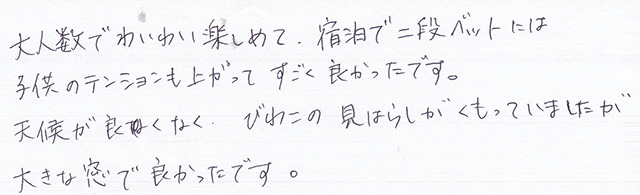 大人数でわいわい楽しめて、宿泊で二段ベットには
子供のテンションも上がってすごく良かったです。
天候が良くなく、びわこの見はらしがくもっていましたが
大きな窓で良かったです。